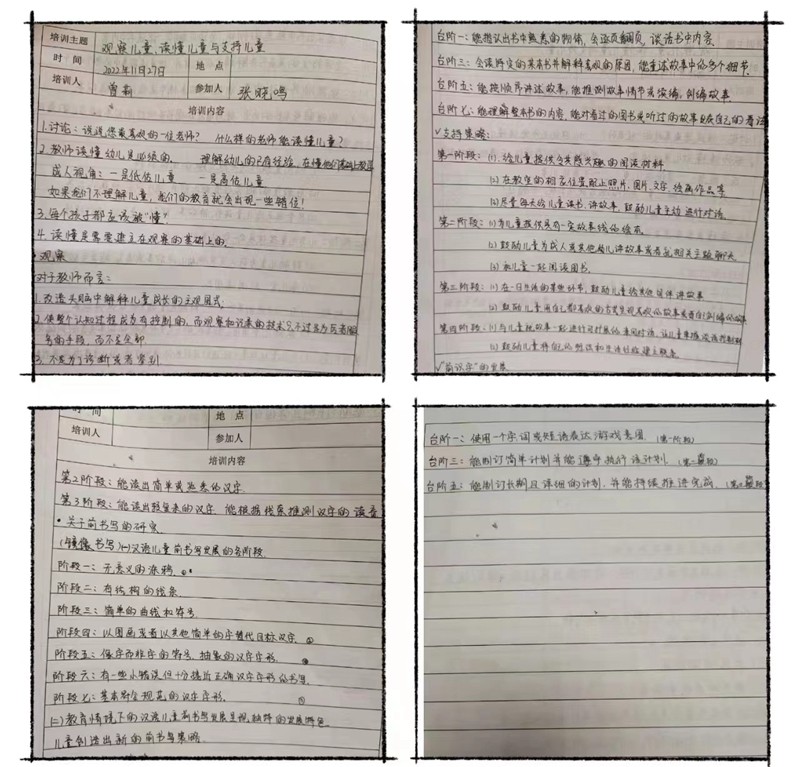 培训主题 观察儿童、读懂儿童与支持儿童
时间 2022年11月27日 地点
培训人 曾莉 参加人 张晓鸣
培训内容
1.讨论：说说你最喜欢的一位老师？ 什么样的老师能读懂儿童？
2.教师读懂幼儿是必须的。 理解幼儿的已有经验，在懂他们基础上教育
成人视角：一是低估儿童 一是高估儿童
如果我们不理解儿童，我们的教育就会出现一些错位！
3.每个孩子都应该被"懂"
4.读懂是需要建立在观察的基础上的
•观察
对于教师而言：
1.改造头脑中解释儿童成长的主观图式
2.使整个认知过程成为有控制的，而观察和记录的技术只不过是为后者服
务的手段，而不是全部
3.不是为了诊断或者鉴别
台阶一：能指认出书中熟悉的物体，会逐页翻页，谈话书中内容
台阶三：会谈特定的某本书并解释喜欢的原因，能重述故事中的多个细节
台阶五：能按顺序讲述故事，能推测故事情节或续编，创编故事
台阶七：能理解整本书的内容，能对看过的图书或听过的故事说自己的看法
√支持策略：
第一阶段：(1)给儿童提供会感兴趣的阅读材料
(2)在教室的相应位置配上照片，图片，文字，绘画作品等
(3)尽量每天给儿童读书、讲故事，鼓励儿童主动进行对话。
第二阶段：(1)为儿童提供具有一定故事线的绘本
(2)鼓励儿童为成人或其他幼儿讲故事或者就相关主题聊天
(3)和儿童一起阅读图书
第三阶段：(1)在一日生活的某些环节，鼓励儿童给其他伙伴讲故事
(2)鼓励儿童用自己都喜欢的方式呈现喜欢的故事或者自己创编的故事
第四阶段：(1)与儿童就故事一起进行
(2)鼓励儿童将自己的
√"前识字"的发展
时间 地点
培训人 参加人
培训内容
第2阶段：能读出简单或熟悉的汉字
第3阶段：能读出较复杂的汉字，能根据线索推测汉字的读音
•关于前书写的研究
(镜像书写)(一)汉语儿童前书写发展的各阶段
阶段一：无意义的涂鸦
阶段二：有结构的线条
阶段三：简单的曲线和符号
阶段四：以图画或者以其他简单的字替代目标汉字
阶段五：像字而非字的符号，抽象的汉字字形
阶段六：有一些小错误但十分接近正确汉字字形的书写
阶段七：基本符合规范的汉字字形
(二)教育情境下的汉语儿童前书写发展呈现独特的发展特色
儿童创造出新的前书写策略
台阶一：使用一个字词或短语表达游戏意图 (第一阶段)
台阶三：能制订简单计划并能遵守执行该计划 (第二阶段)
台阶五：能制订长期且详细的计划，并能持续推进完善 (第三阶段)